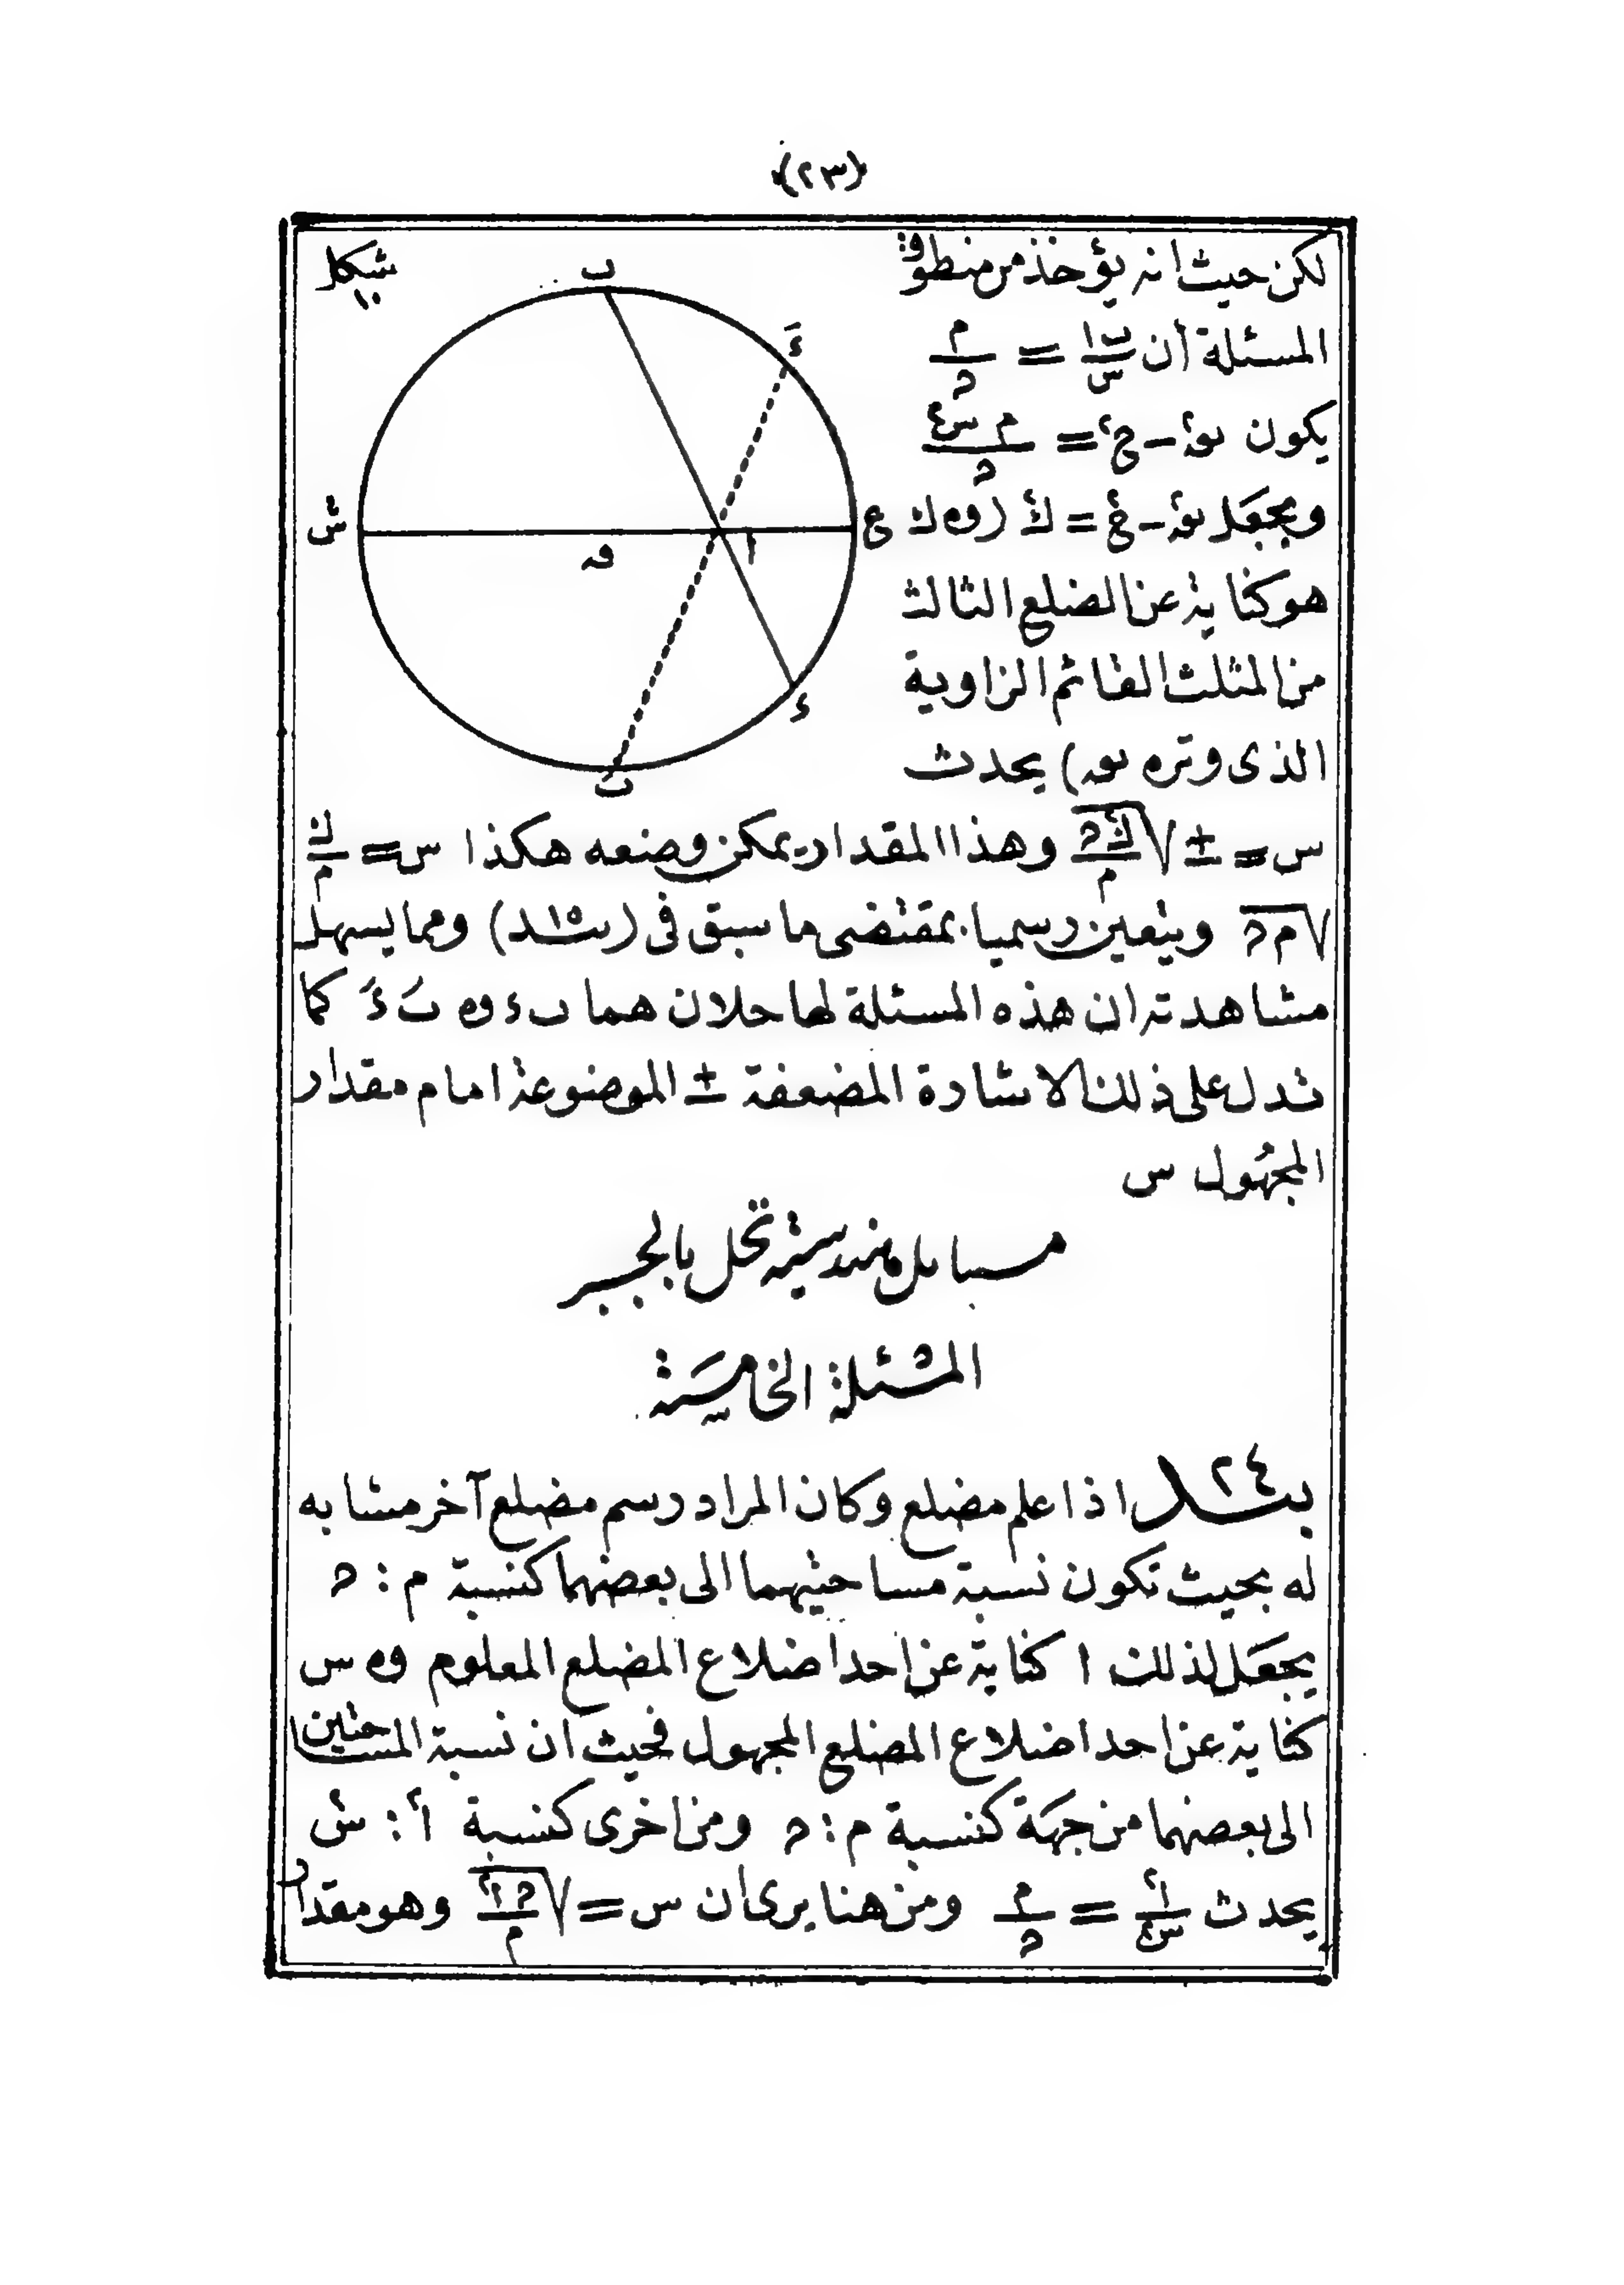 (٢٣)
لكن حيث انه يؤخذ من منطوق
المسئلة أن ب‍ا/س = م/ح
يكون نق٢ - ج٢ = م س٢/ح
وبجعل نق٢ - ج٢ = ك٢ (و ك
هو كناية عن الضلع الثالث
من المثلث القائم الزاوية
الذى وتره نق) يحدث
س = ± √ك٢ح/م وهذا المقدار يمكن وضعه هكذا س = ك/م
√م ح ويتعين رسميا بمقتضى ما سبق فى (بند ١٥) ومما يسهل
مشاهدته ان هذه المسئلة لها حلان هما ب ء و بَ ءَ كما
تدل على ذلك الاشارة المضعفة ± الموضوعة امام مقدار
المجهول س
شكل ١٠
ب
ءَ
ش
ع
ا
ء
بَ
مسايل هندسية تحل بالجبر
المسئلة الخامسة
بند ٢٤ اذا علم مضلع وكان المراد رسم مضلع آخر مشابه
له بحيث تكون نسبة مساحتيهما الى بعضهما كنسبة م : ح
يجعل لذلك ا كناية عن احد اضلاع المضلع المعلوم و س
كناية عن احد اضلاع المضلع المجهول فحيث ان نسبة المساحتين
الى بعضهما من جهة كنسبة م : ح ومن اخرى كنسبة ا٢ : س٢
يحدث ا٢/س٢ = م/ح ومن هنا يرى ان س = √ح ا٢/م وهو مقدار